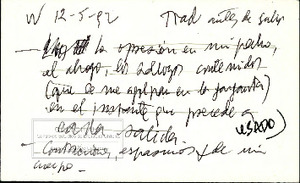 W 12-5-92
antes de salir
— la opresión en mi pecho,
el ahogo, los sollozos contenidos
(que se me agolpan en la garganta)
en el instante que precede a
cada salida. USADO
— Contracciones, espasmos de mi
cuerpo —